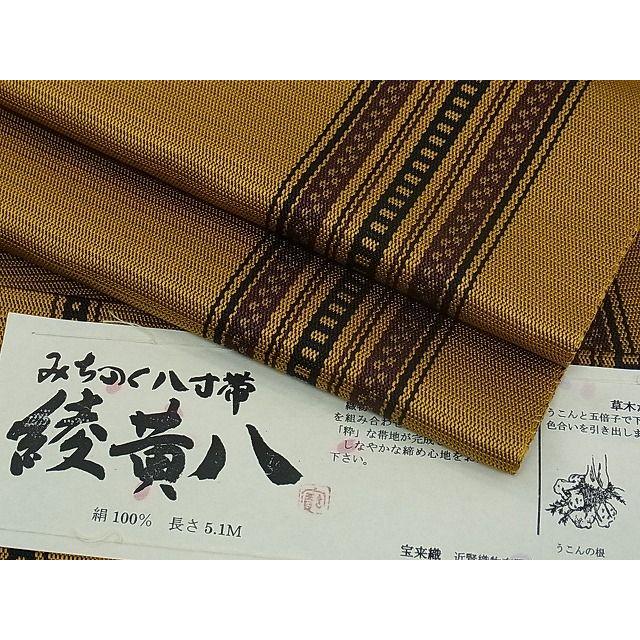 みちのく八寸帯
綾黄八
絹100% 長さ5.1M
を組み合わ
「粋」な帯地が完成
しなやかな締め心地を
下さい。
宝来織
草木
うこんと五倍子で下
色合いを引き出しま
うこんの根